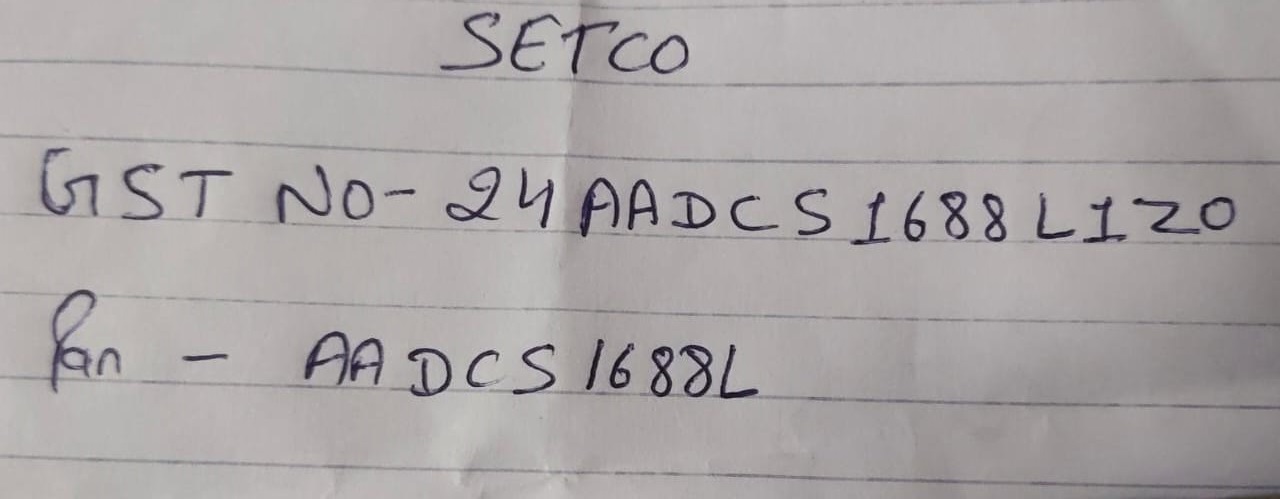 SETCO
GST NO- 24AADCS1688L1Z0
Pan - AADCS1688L